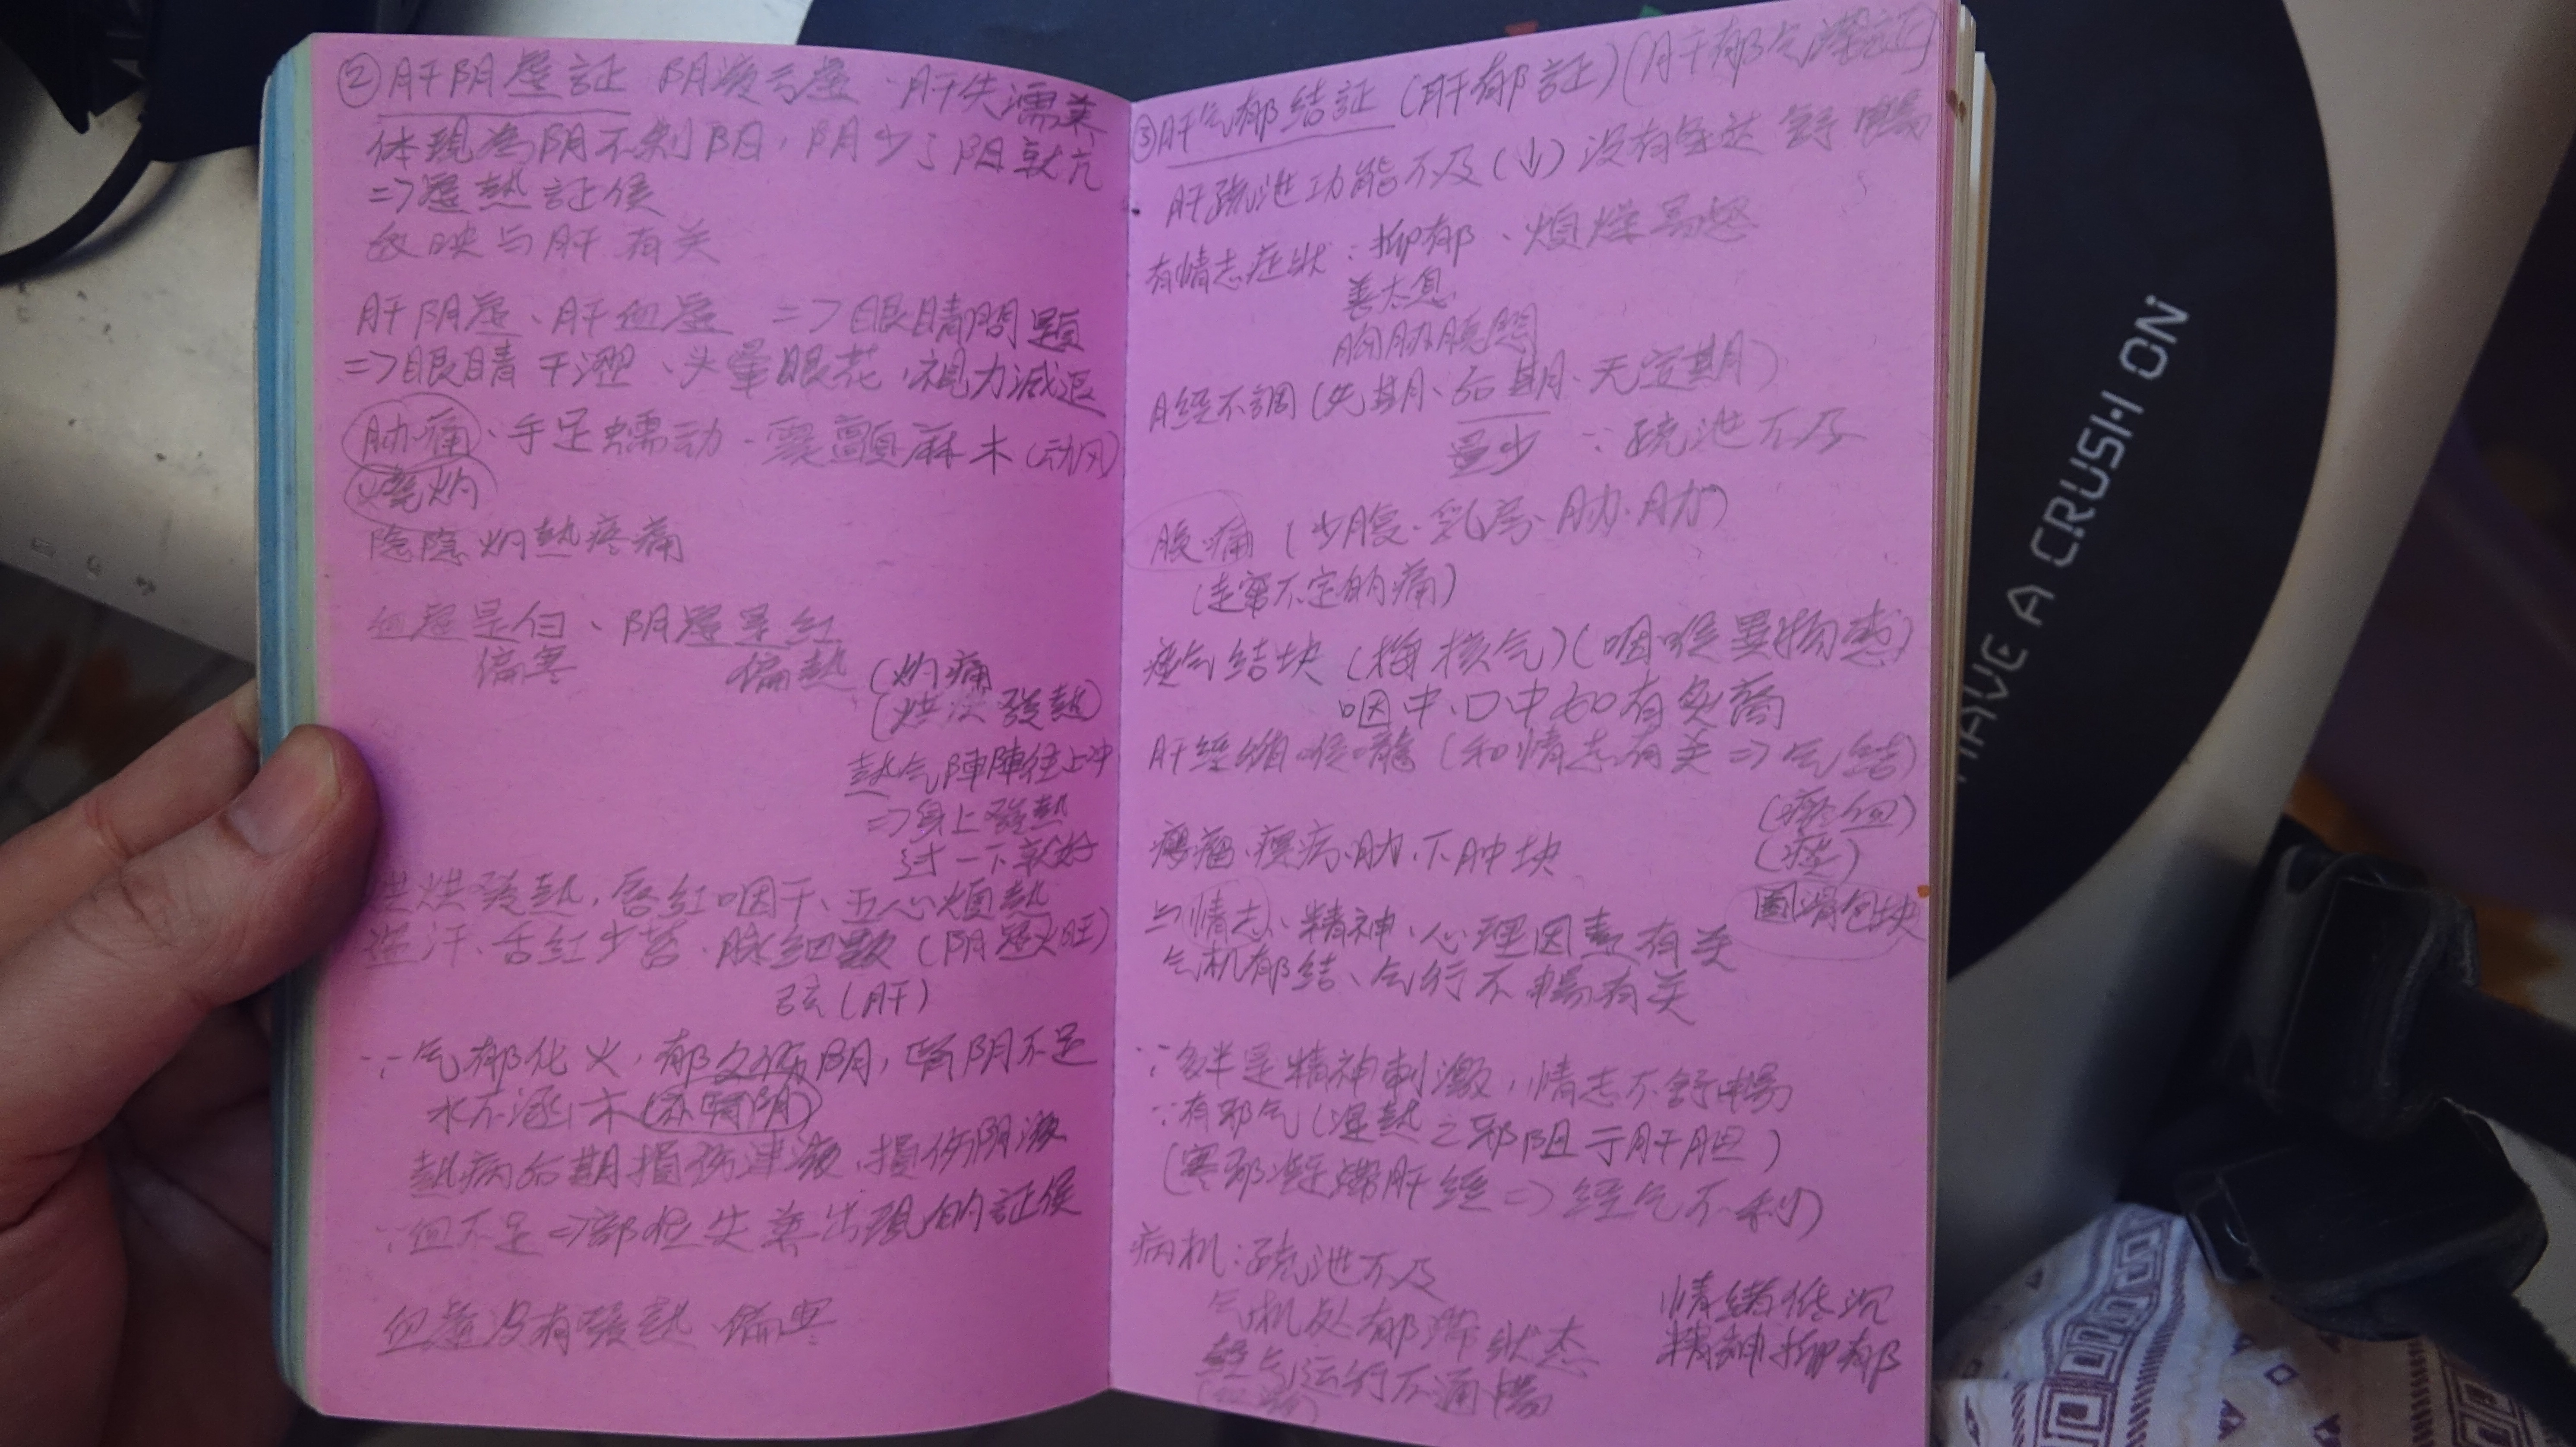 ②肝阴虚証 阴液亏虚、肝失濡养
体現為阴不制阳，阴少了阳就亢
=>虚熱証侯
反映与肝有关
肝阴虚、肝血虚 =>眼睛問題
=>眼睛干澀、头暈眼花、視力減退
胁痛、手足蠕动、震顫麻木(动风)
燒灼
隐隐灼熱疼痛
血虚是白、阴虚是紅
偏寒 偏熱
(灼痛
(烘烘發熱)
熱气陣陣往上冲
=>身上發熱
过一下就好
烘烘發熱，唇紅咽干、五心煩熱
盗汗、舌紅少苔、脉細數(阴虚火旺)
弦(肝)
∵气郁化火，郁久伤阴，腎阴不足
水不涵木(补腎阴)
熱病后期損伤津液、損伤阴液
∵血不足=>部位失养出現的証侯
血虚沒有發熱、偏寒
③肝气郁結証(肝郁証)(肝郁气滯証)
肝疏泄功能不及(↓) 沒有 舒暢
有情志症狀：抑郁、煩燥易怒
善太息
胸胁脹悶
月經不調(先期、后期、无定期)
量少 ∵疏泄不及
脹痛(少腹、乳房、胁肋)
(走竄不定的痛)
痰气結块(梅核气)(咽喉異物感)
咽中、口中如有炙臠
肝經循喉嚨(和情志有关=>气結)
(瘀血)
(痰)
癭瘤、瘰疬、胁下肿块
圓滑包块
与情志、精神、心理因素有关
气机郁結、气行不暢有关
∵多半是精神刺激，情志不舒暢
∵有邪气(湿熱之邪阻于肝胆)
(寒邪凝滯肝經=>經气不利)
病机：疏泄不及
气机处郁滯狀态
經气运行不通暢
情緒低沉
精神抑郁
HAVE A CRUSH ON